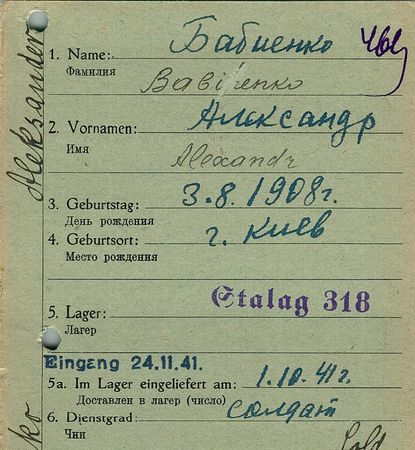 Aleksander
ko
1. Name: Бабиенко
Фамилия
2. Vornamen: Александр
Имя
Alexandr
3. Geburtstag: 3.8.1908г.
День рождения
4. Geburtsort: г. Киев
Место рождения
5. Lager: Stalag 318
Лагер
Eingang 24.11.41.
5a. Im Lager eingeliefert am: 1.10.41г.
Доставлен в лагер (число)
6. Dienstgrad: солдат
Чин
Sold